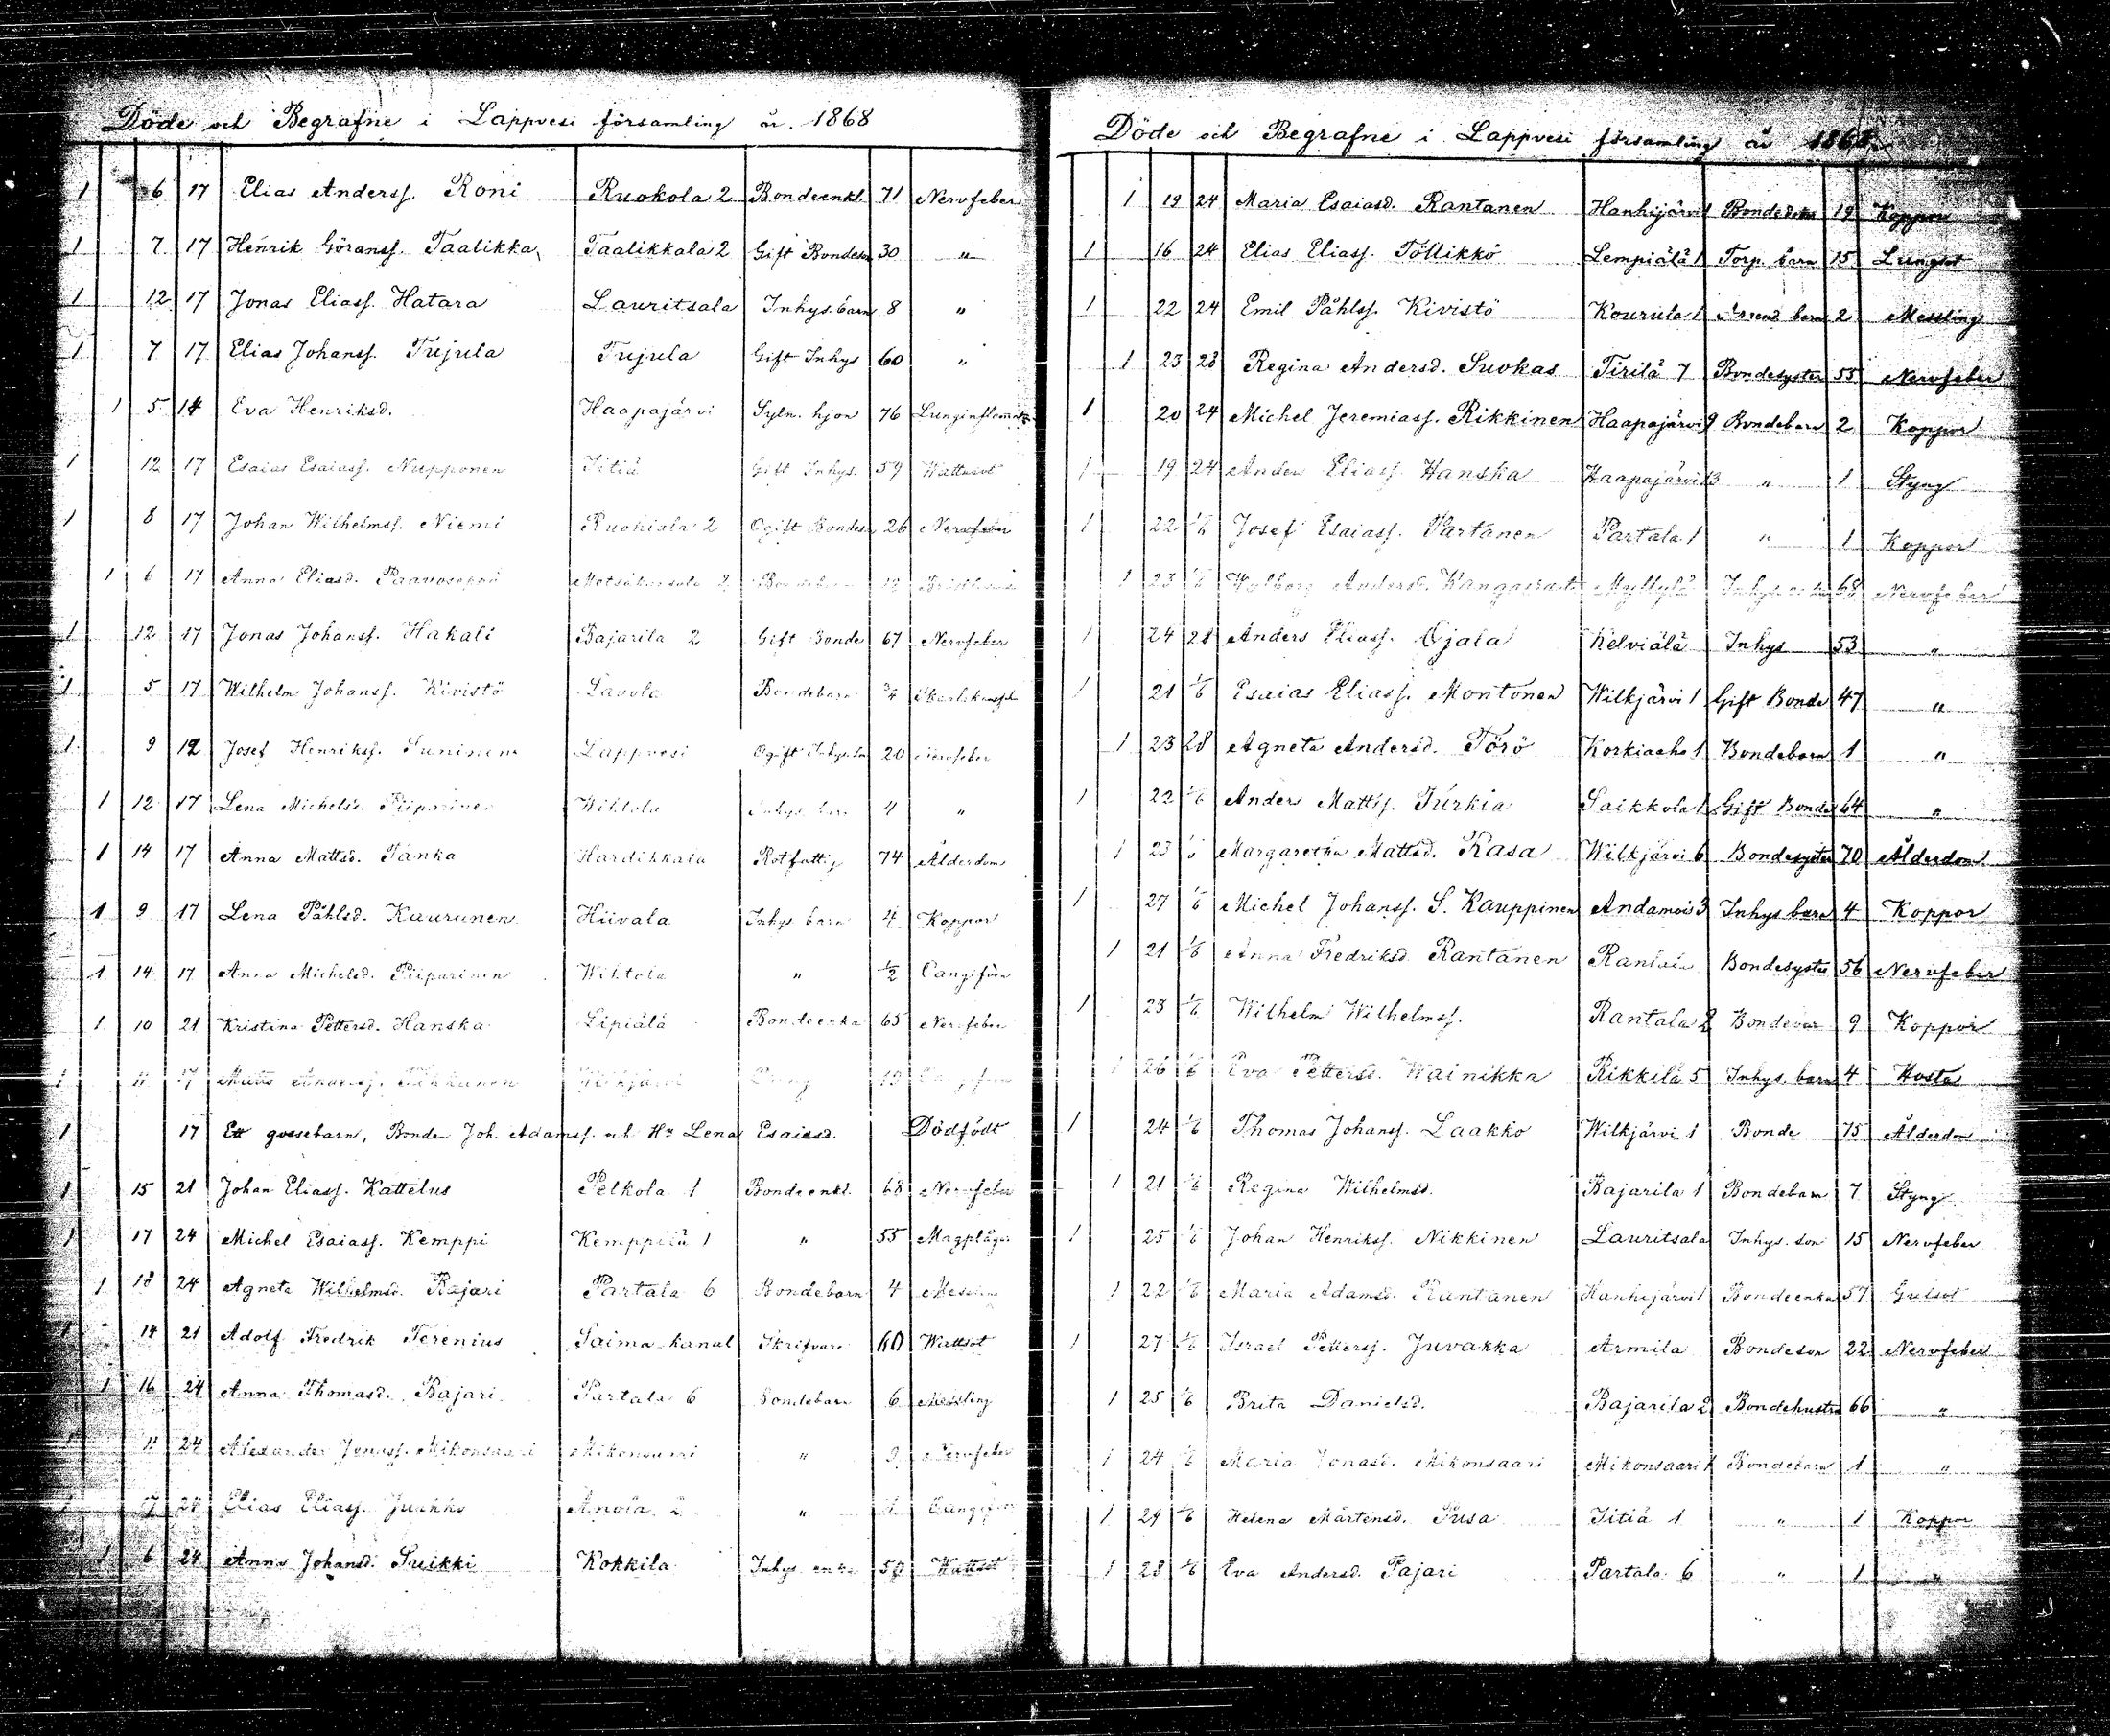 Döde och Begrafne i Lappvesi församling år. 1868
1 6 17 Elias Anderss. Roni Ruokola 2 Bondeenkl. 71 Nervfeber
1 7 17 Henrik Göranss. Taalikka Taalikkala 2 Gift Bondeson 30 "
1 12 17 Jonas Eliass. Hatara Lauritsala Inhys. barn 8 "
1 7 17 Elias Johanss. Tujula Tujula Gift Inhys 60 "
1 5 14 Eva Henriksd. Haapajärvi Sytn. hjon 76
1 12 17 Esaias Esaiass. Nupponen Iitiä Gift Inhys. 59 Wattusot
1 8 17 Johan Wilhelmss. Niemi Ruohiala 2 Ogift Bondeson 26 Nervfeber
1 6 17 Anna Eliasd.
1 12 17 Jonas Johanss. Hakali Bajarila 2 Gift Bonde 67 Nervfeber
1 5 17 Wilhelm Johanss. Kivistö Lavola Bondebarn
1 9 12 Josef Henrikss. Suninen Lappvesi Ogift 20 Nervfeber
1 12 17 Lena Michelsd. Piiparinen Wihtola Inhys barn 4 "
1 14 17 Anna Mattsd. Tanka Hardikkala Rotfattig 74 Ålderdom
1 9 17 Lena Påhlsd. Kaurunen Hiivala Inhys barn 4 Koppor
1 14 17 Anna Michelsd. Piiparinen Wihtola " 1/2
1 10 21 Kristina Pettersd. Hanska Lipiälä Bondeenka 65 Nervfeber
1 11 17 Matts Anderss.
1 17 Ett gossebarn, Bonden Joh. Adamss. och Hu Lena Esaiasd. Dödfödt
1 15 21 Johan Eliass. Kattelus Pelkola 1 Bondeenkl. 68 Nervfeber
1 17 24 Michel Esaiass. Kemppi Kemppilä 1 " 55 Magplågor
1 18 24 Agneta Wilhelmsd. Bajari Partala 6 Bondebarn 4
1 14 21 Adolf Fredrik Terenius Saima kanal Skrifvare 60 Wattsot
1 16 24 Anna Thomasd. Bajari Partala 6 Bondebarn 6 Messling
1 11 24 Alexander Jonass. Mikonsaari Mikonsaari " 9 Nervfeber
24 Elias Eliass. Juhkko "
1 6 24 Anna Johansd. Suikki Kokkila Inhys enka 50 Wattsot
Döde och Begrafne i Lappvesi församling år 1868
1 19 24 Maria Esaiasd. Rantanen Hanhijärvi 1 19 Koppor
1 16 24 Elias Eliass. Töllikkö Lempiälä 1 Torp. barn 15 Lungsot
1 22 24 Emil Påhlss. Kivistö Kourula 1 barn 2 Messling
1 23 28 Regina Andersd. Suokas Tirilä 7 Bondesyster 55 Nervfeber
1 20 24 Michel Jeremiass. Rikkinen Haapajärvi 9 Bondebarn 2 Koppor
1 19 24 Anders Eliass. Hanska Haapajärvi 13 " 1 Styng
1 22 1/6 Josef Esaiass. Partanen Partala 1 " 1 Koppor
1 23 1/6 Walborg Andersd. Myllylä 68 Nervfeber
1 24 28 Anders Eliass. Ojala Kelviälä Inhys 53 "
1 21 1/6 Esaias Eliass. Montonen Wilkjärvi 1 Gift Bonde 47 "
1 23 28 Agneta Andersd. Törö Korkiaaho 1 Bondebarn 1 "
1 22 1/6 Anders Mattss. Turkia Saikkola 1 Gift Bonde 64 "
1 23 1/6 Margaretha Mattsd. Rasa Wilkjärvi 6 Bondesyster 70 Ålderdom
1 27 1/6 Michel Johanss. S. Kauppinen Andamois 3 Inhys barn 4 Koppor
1 21 1/6 Anna Fredriksd. Rantanen Rantala Bondesyster 56 Nervfeber
1 23 1/6 Wilhelm Wilhelmss. Rantala 2 Bondebar 9 Koppor
1 26 1/6 Eva Pettersd. Wainikka Rikkilä 5 Inhys. barn 4 Hosta
1 24 1/6 Thomas Johanss. Laakko Wilkjärvi 1 Bonde 75 Ålderdom
1 21 1/6 Regina Wilhelmsd. Bajarila 1 Bondebarn 7 Styng
1 25 1/6 Johan Henrikss. Nikkinen Lauritsala Inhys. son 15 Nervfeber
1 22 1/6 Maria Adamsd. Rantanen Hanhijärvi 1 Bondeenka 57 Gulsot
1 27 1/6 Israel Petterss. Juvakka Armila Bondeson 22 Nervfeber
1 25 1/6 Brita Danielsd. Bajarila 2 Bondehustru 66 "
1 24 1/6 Maria Jonasd. Mikonsaari Mikonsaari 1 Bondebarn 1 "
1 29 1/6 Helena Mårtensd. Pusa Iitiä 1 " 1 Koppor
1 28 1/6 Eva Andersd. Pajari Partala 6 " 1 "